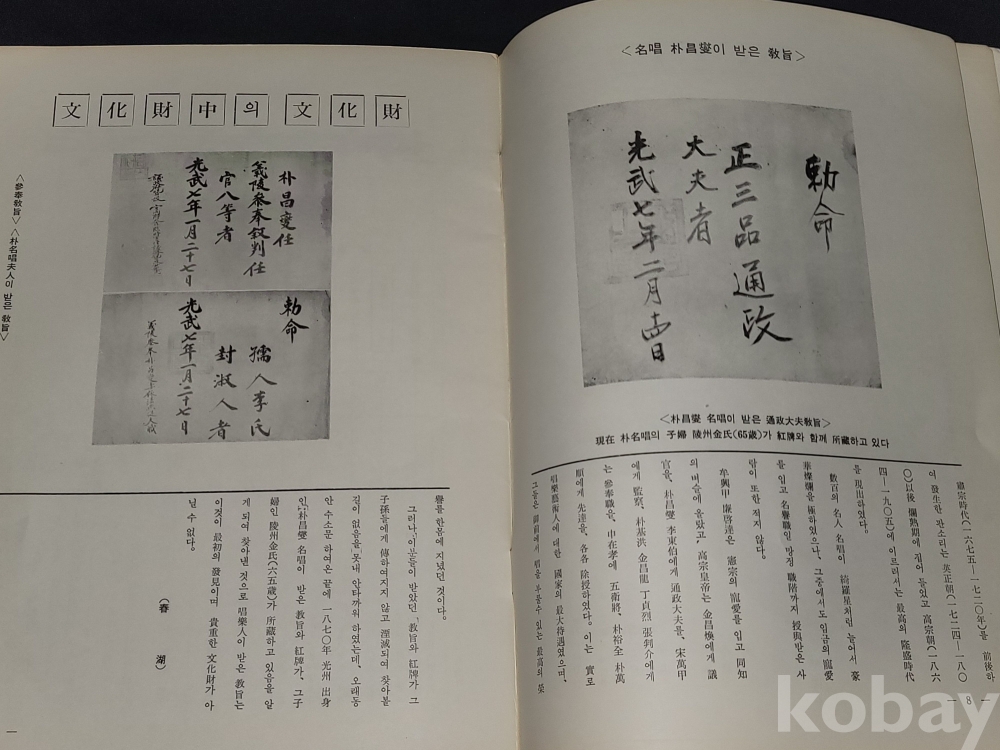 <名唱 朴昌燮이 받은 敎旨>
勅命
正三品通政
大夫者
光武七年二月
<朴昌燮 名唱이 받은 通政大夫敎旨>
現在 朴名唱의 子婦 陵州金氏(65歲)가 紅牌와 함께 所藏하고 있다
憲宗時代(一六七五—一七二○年)를 前後하
여 發生한 판소리는 英正朝(一七二四—一八○
○)以後 爛熟期에 접어 들었고 高宗朝(一八六
四—一九○五)에 이르러서는 最高의 隆盛時代
를 現出하였다.
數百의 名人 名唱이 綺羅星처럼 늘어서 豪
華燦爛을 極하였으나、그중에서도 임금의 寵愛
를 입고 名譽職일 망정 職階까지 授與받은 사
람이 또한 적지 않다.
牟興甲 廉啓達은 憲宗의 寵愛를 입고 同知
의 벼슬에 올랐고、高宗皇帝는 金昌煥에게 議
官을、朴昌燮 李東伯에게 通政大夫를、宋萬甲
에게 監察、朴基洪 金昌龍 丁貞烈 張判介에게
는 參奉職을、申在孝에 五衛將、朴裕全 朴萬
順에게 先達을、各各 除授하였다. 이는 實로
唱樂藝術人에 대한 國家의 最大待遇였으며、
그들은 御前에서 唱을 부를수 있는 最高의 榮
— 8 —
文化財中의 文化財
朴昌燮任
義陵參奉敍判任
官八等者
光武七年一月二十七日
勅命
孺人李氏
封淑人者
光武七年一月二十七日
<參奉敎旨> <朴名唱夫人이 받은 敎旨>
譽를 한몸에 지녔던 것이다.
그러나、이분들이 받았던 敎旨와 紅牌가 그
子孫들에게 傳하여지지 않고 湮滅되여 찾아볼
길이 없음을 못내 안타까워 하였는데、오래동
안 수소문 하여온 끝에 一八七○年 光州 出身
인 朴昌燮 名唱이 받은 敎旨와 紅牌가、그 子
婦인 陵州金氏(六五歲)가 所藏하고 있음을 알
게 되여 찾아낸 것으로 唱樂人이 받은 敎旨는
이것이 最初의 發見이며 貴重한 文化財가 아
닐 수 없다.
(春 湖)
kobay